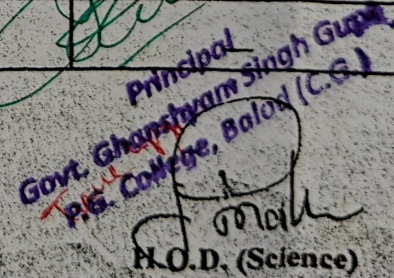 Principal
Govt. Ghanshyam Singh Gupta
P.G. College, Balod (C.G.)
H.O.D. (Science)